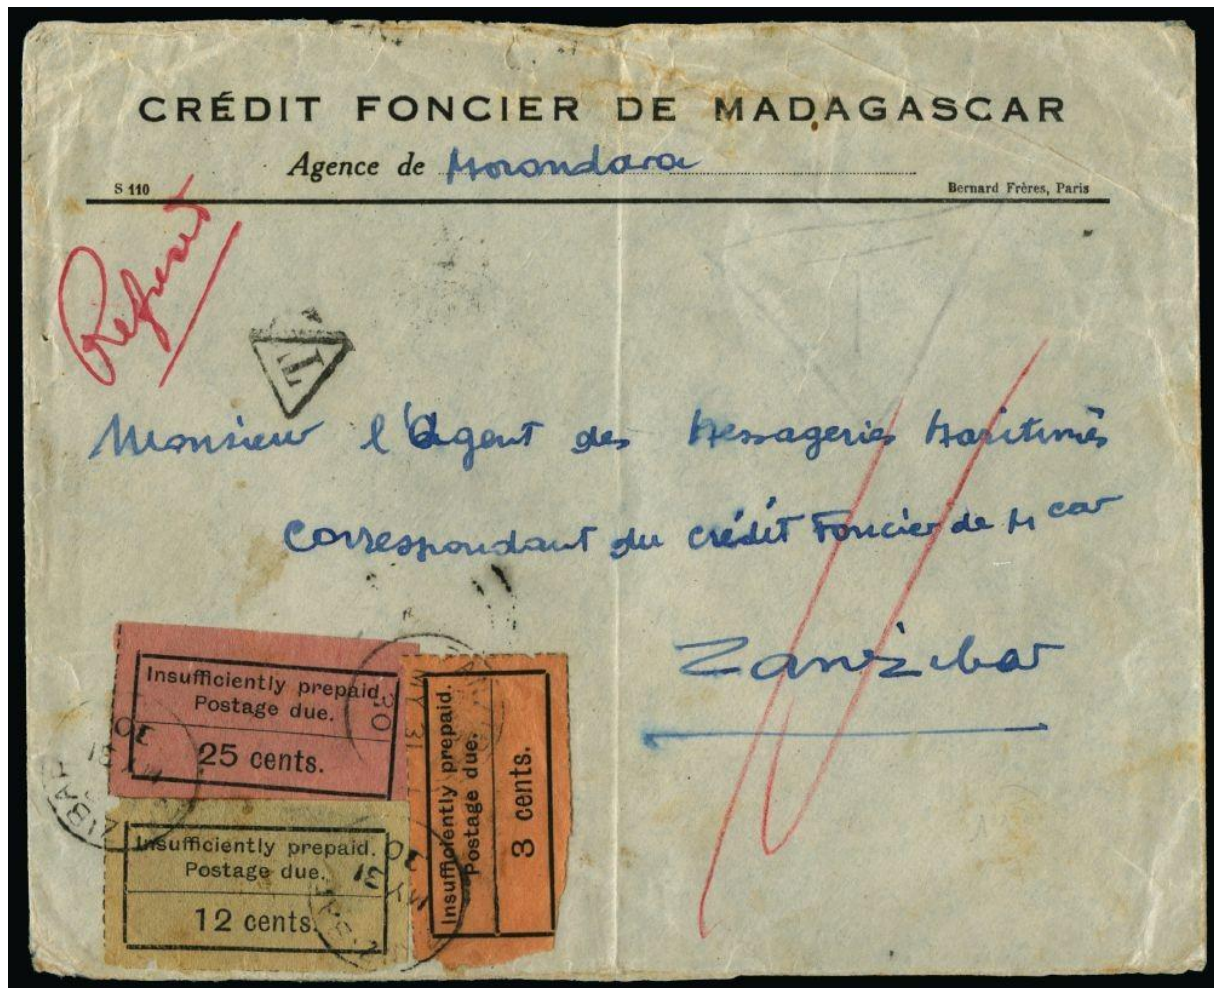 CRÉDIT FONCIER DE MADAGASCAR
Agence de Morondava
S 110
Bernard Frères, Paris
T
Monsieur l'Agent des Messageries Maritimes
Correspondant du Crédit Foncier de Mcar
Zanzibar
Insufficiently prepaid.
Postage due.
25 cents.
Insufficiently prepaid.
Postage due.
3 cents.
Insufficiently prepaid.
Postage due.
12 cents.
MY 31
30
MY 31
30
MY 31
30